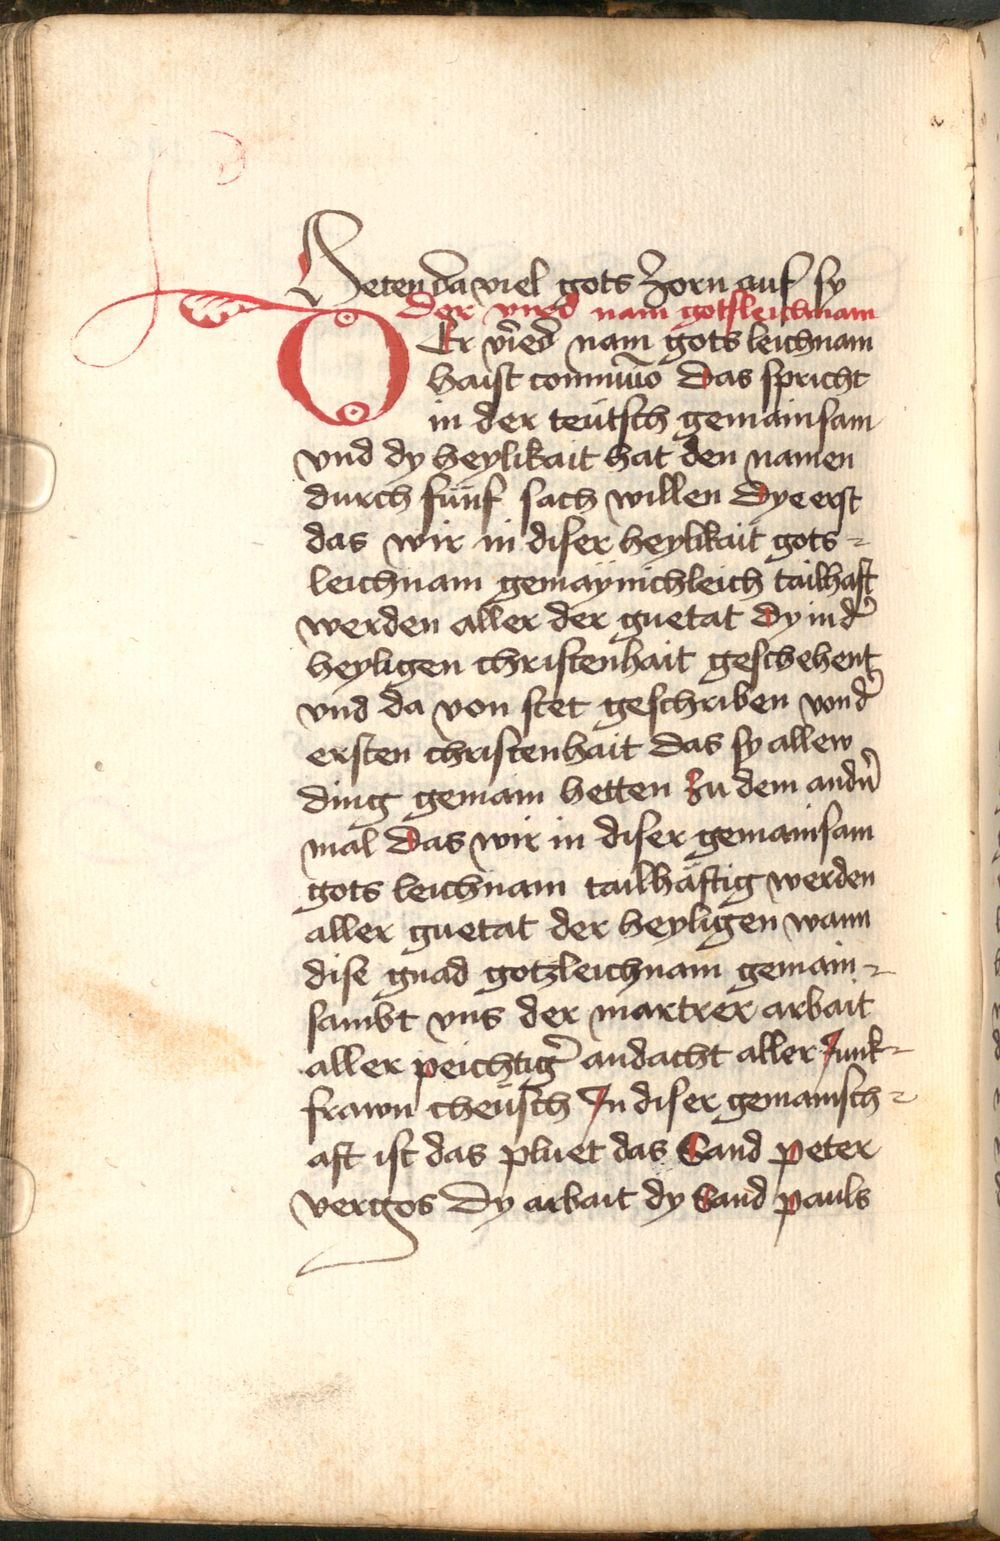 Aeten da viel gots zorn auf sy
Der vierd nam gotsleichnam
DEr vierd nam gots leichnam
haist co̅muni̅o Das spricht
in der teütsch gemainsam
vnd dy heylikait hat den namen
durch fünf sach willen Dye erst
das wir in diser heylikait gots⸗
leichnam gemaynichleich tailhaft
werden aller der guetat Dy in d̾
heyligen christenhait geschehent
vnd da von stet geschriben von d̾
ersten christenhait das sy allew
ding gemain hetten Zu dem andn̾
mal Das wir in diser gemainsam
gots leichnam tailhäftig werden
aller guetat der heyligen wann
dise gnad gotzleichnam gemain⸗
sambt vns der martrer arbait
aller peichtig̾ andacht aller Junk⸗
frawn cheüsch In diser gemainsch⸗
aft ist das pluet das Sand peter
vergos Dy arbait dy Sand pauls